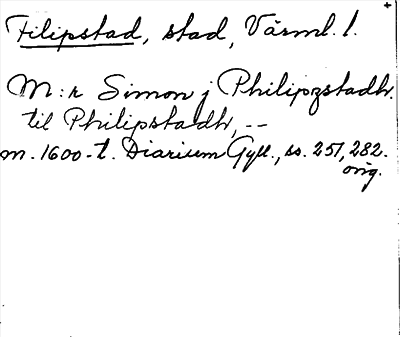 Filipstad, stad, Värml. l.
M:r Simon j Philipzstadh.
til Philipstadh, --
m. 1600-t. Diarium Gyll., ss. 257, 282.
orig.